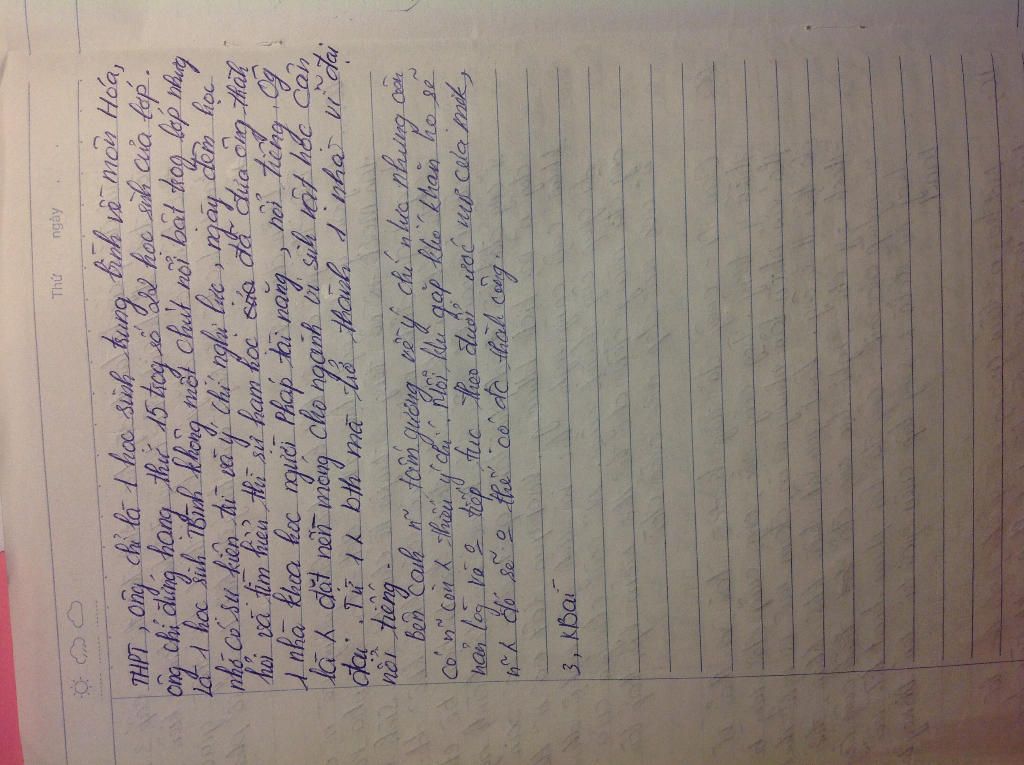 Thứ ngày
THPT, ông chỉ là 1 học sinh trung bình về môn Hóa,
ông chỉ đứng hạng thứ 15 trog số 22 học sinh của lớp.
Là 1 học sinh TBình không một chút nổi bật trog lớp nhưng
nhờ có sự kiên trì và ý chí nghị lực, ngày đêm học
hỏi và tìm hiểu thì sự ham học đã đưa ông thành
1 nhà khoa học người Pháp tài năng, nổi tiếng. Ông
là đặt nền móng cho ngành vi sinh vật học cận
đại. Từ 1 bth mà trở thành 1 nhà vĩ đại
nổi tiếng.
Bên cạnh tấm gương về ý chí nghị lực nhưng vẫn
có còn thiếu ý chí. Mỗi khi gặp khó khăn họ sẽ
nản lòng và tiếp tục theo đuổi ước mơ của mik,
đó sẽ thể có đc thành công.
3, KBài